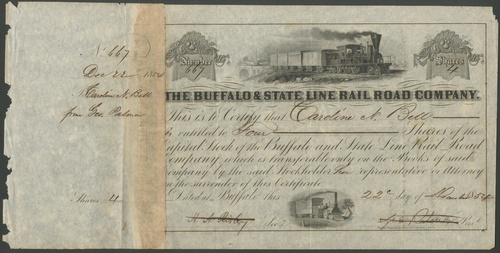 No. 667
Dec 22 1854
Caroline N. Bell
from Geo. Palmer
Shares 4
Number
667
Shares
4
THE BUFFALO & STATE LINE RAIL ROAD COMPANY.
This is to Certify that Caroline N. Bell
is entitled to Four Shares of the
Capital Stock of the Buffalo and State Line Rail Road
Company, which is transferable only on the Books of said
Company by the said Stockholder her representative or Attorney
on the surrender of this Certificate.
Dated at Buffalo this 22d day of 1854
Secy.
Prest.